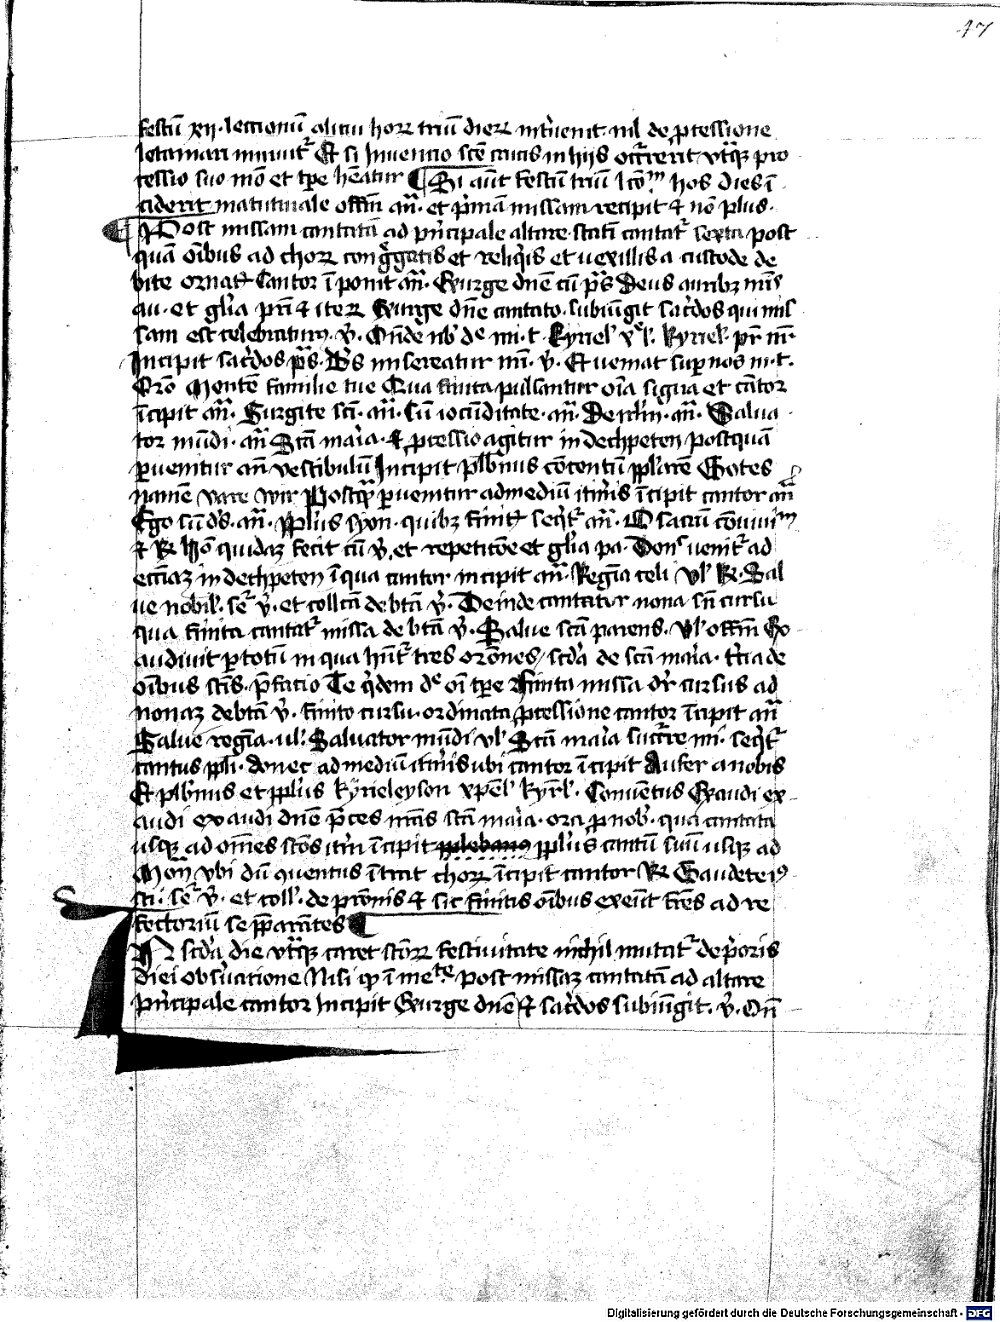 47
festū xij · lectionū alicui horꝝ triū dierꝝ int̉uenit nil de p̱cessione
letaniarū minuit᷑ Et si Inuencio scē crucis in hijs occ̉rerit vtrāqꝫ pro
cessio suo mō et tp̄e habeatur ¶ Si aūt festū triū lcōm hos dies ī
ciderit matutinale offm̄ an̄ · et p̉mā missam recipit ⁊ nō plus ·
¶ Post missam cantatā ad p̉ncipale altare · statī cantat᷑ sexta post
quā oībus ad chorꝝ congregatis et reliq̉is et uexillis a custode de
bite ornat᷑ Cantor īponit an̄ · Exurge dn̄e cū ps̄ Deus auribꝫ nr̄is
au · et gl̉ia pr̄i ⁊ iterꝝ Exurge dn̄e cantato · subiūgit sac̉dos qui mis
sam est celebraturꝰ · v̉ · Oñde nb̉ dn̄e mi · t · Kyriel᷑ xp̄el᷑ · kyriel᷑ · pr̄ nr̄ ·
Incipit sac̉dos ps̄ · Ds̄ misereatur nr̄i · v̉ · Et ueniat sup̱ nos m · t ·
Orō Mentē familie tue Qua finita pulsantur oīa signa et cātor
īcipit an̄ · Surgite sc̄i · an̄ · Cū iocūditate · an̄ · De Ierl̄m · an̄ · Salua ·
tor mūdi · an̄ Sc̄a maria · ⁊ p̱cessio agitur in dechpeten postquā
p̱uenitur an̄ vestibulū Incipit plb̄nus cōcentū ppl̄arē Gotes
namē vare wir Postq̄ꝫ p̱uenitur ad mediū itin̉is īcipit cantor an̄
Ego sū ds̄ · an̄ · Ppl̄us syon · quibꝫ finit᷑ seqt᷑ an̄ · O sacrū cōuiuiꝫ
⁊ ℟ Hō quidaꝫ fecit cū v̉ · et repetitōe et gl̉ia pa · Donc̄ uenit᷑ ad
ecc̄iaꝫ in dechpeten ī qua cantor incipit an̄ · Regīa celi vl᷑ ℟ · Sal
ue nobil᷑ · se᷑ v̉ · et collc̄ā de btā v̉ · Deinde cantatur nona sn̄ cursu
qua finita cantat᷑ missa de btā v̉ · Salue sc̄a parens · vl᷑ offm̄ Ex
audiuit p̱ totū in qua hn̄t᷑ tres orōnes · scd̉a de scā mar̉ia · t̉cia de
oībus sctis · p̄fatio Te q̉dem de oī tp̄e Finita missa dr̄ cursus ad
nonaꝫ de btā v̉ · finito cursu · ordinata p̱cessione cantor īcipit an̄
Salue regīa · ul᷑ Salvator mūdi vl᷑ Sc̄a maria succ̉re mi · seqt᷑
cantus ppl̄i · donec ad mediū itin̉is ubi cantor īcipit Aufer a nobis
Et plb̄nus et ppl̄us kyrieleyson xp̄el᷑ kyrl᷑ · Conuentus Exaudi ex
audi exaudi dn̄e p̄ces nr̄as scā mar̉ia · ora p̱ nob᷑ · qua cantata
usqꝫ ad omēs sctos itm̄ īcipit ppl̄us cantū suū usqꝫ ad
Mon̄ vbi dū conuentus ītrat chorꝝ īcipit cantor ℟ Gaudete iꝰ
sti · se᷑ v̉ · et coll᷑ · de pr̄onis ⁊ sic finitis oībus exeūt fr̄es ad re
fectoriū se p̄parātes
IN scd̉a die vtrāqꝫ caret sc̄orꝝ festiuitate nichil mutat᷑ de p̉oris
diei obs̉uatione Nisi qꝫ ī mcte post missaꝫ cantatā ad altare
p̉ncipale cantor Incipit Exurge dn̄e ⁊ sac̉dos subiūgit · v̉ · On̄
Digitalisierung gefördert durch die Deutsche Forschungsgemeinschaft - DFG